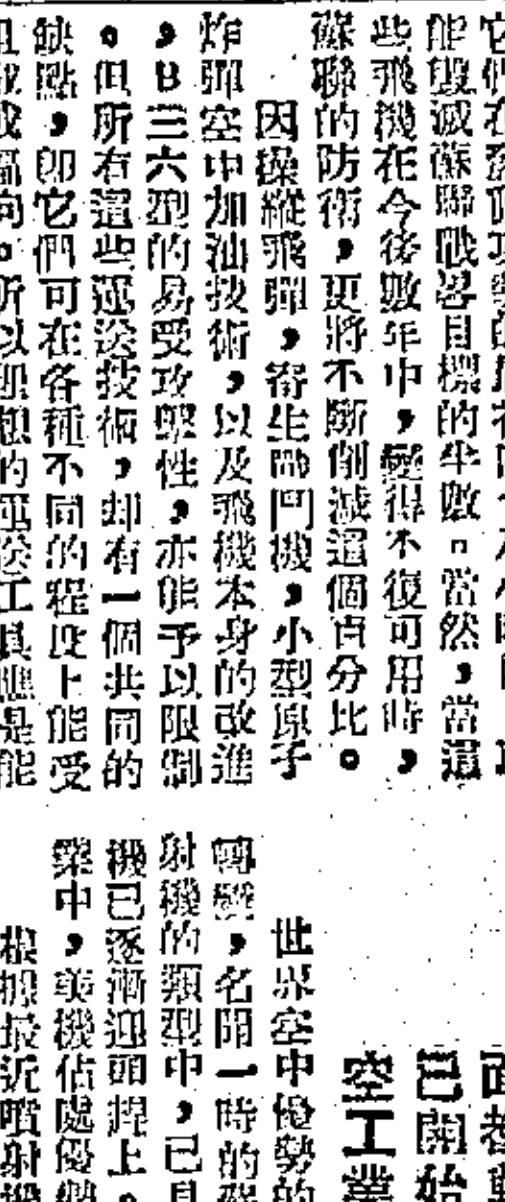 能毀滅蘇聯戰畧目標的半數。當然,當這
些飛機在今後數年中,變得不復可用時,
蘇聯的防衛,更將不斷削減這個百分比。
因操縱飛彈,寄生戰鬥機,小型原子
炸彈空中加油技術,以及飛機本身的改進
,B三六型的易受攻擊性,亦能予以限制
。但所有這些運送技術,却有一個共同的
缺點,即它們可在各種不同的程度上能受
所以理想的運送工具應是能
已開始
空工業
世界空中優勢的
轉變,名聞一時的
射機的類型中,已
機已逐漸迎頭趕上。
業中,美機佔處優
根據最近噴射